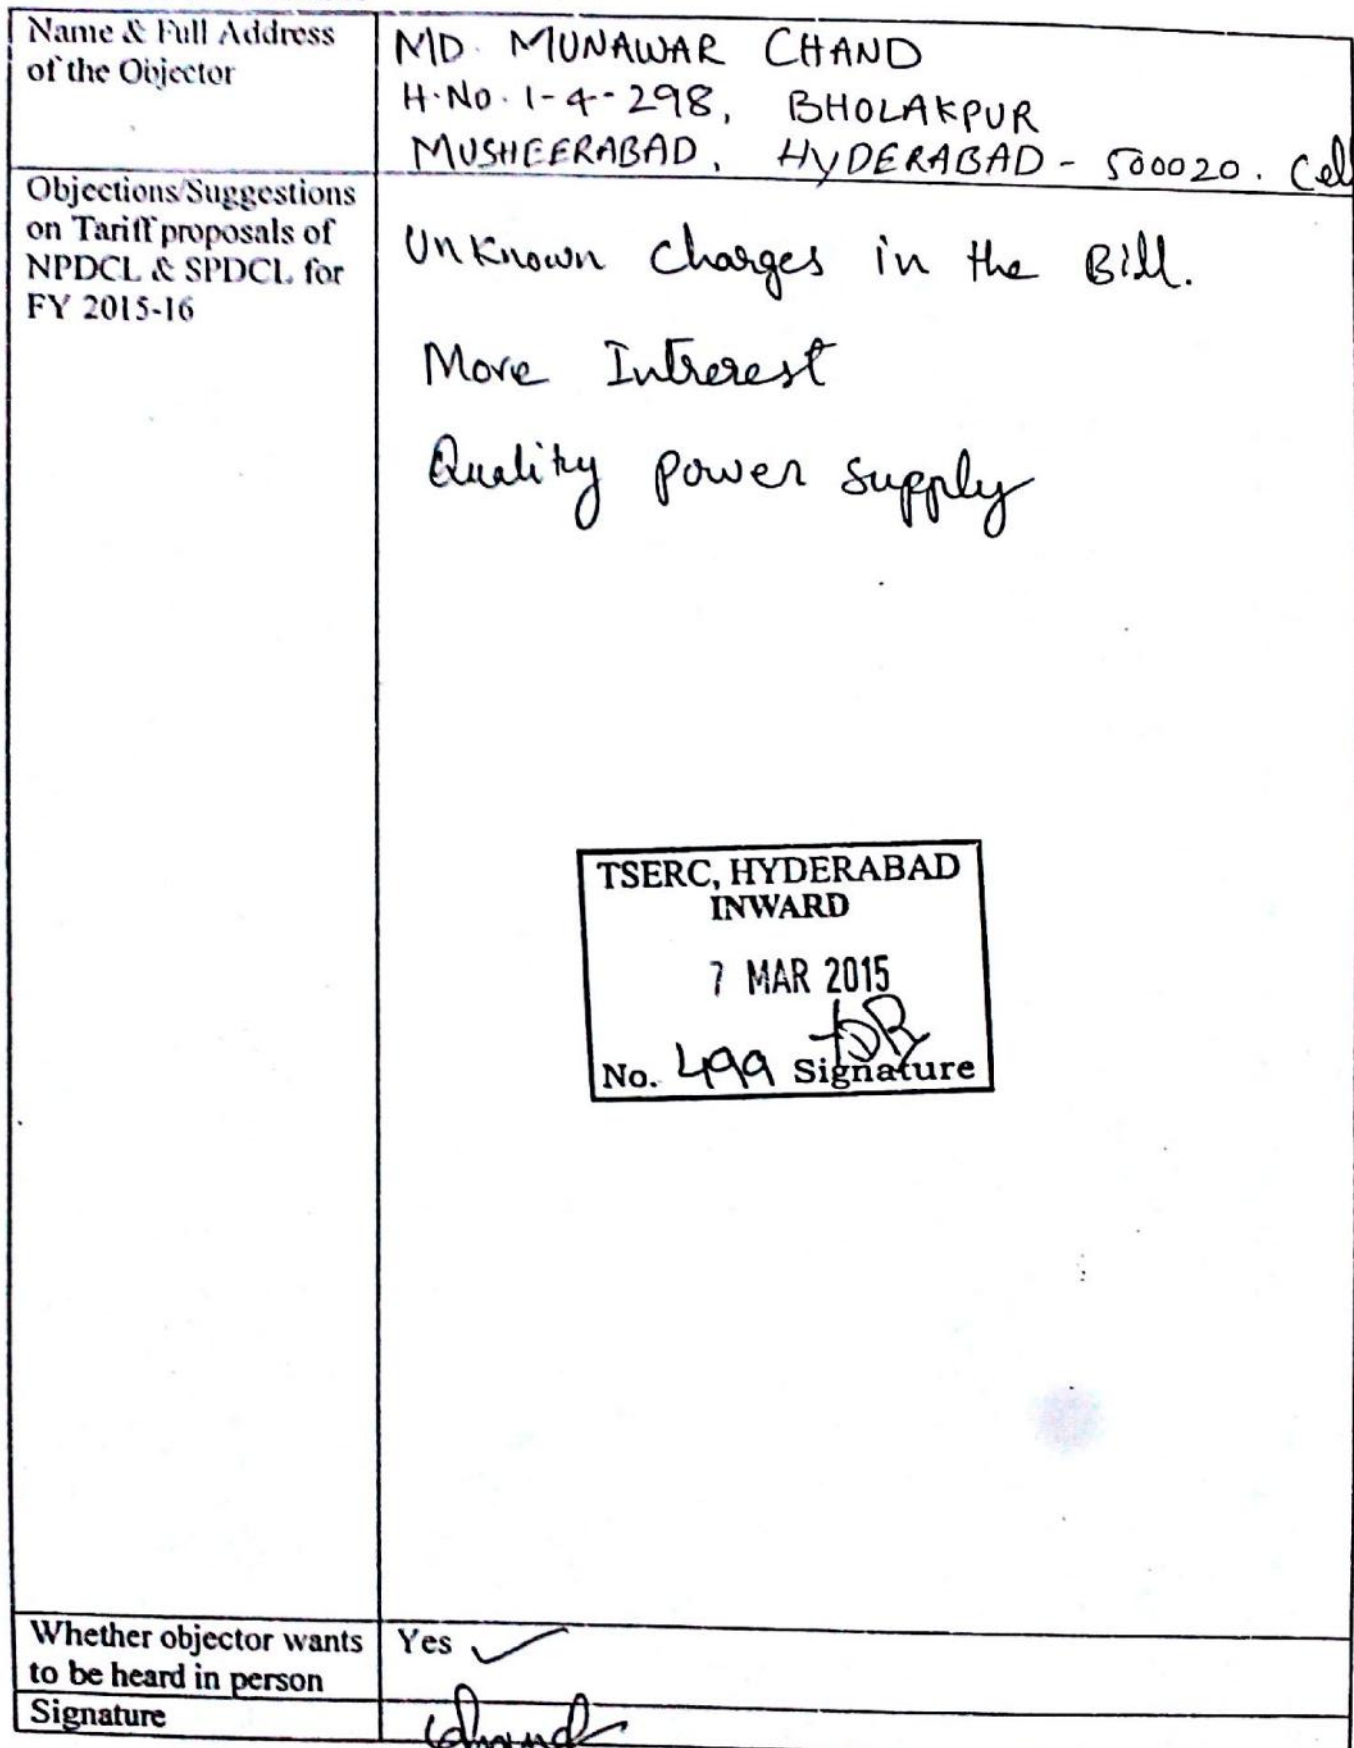 Name & Full Address
of the Objector
MD. MUNAWAR CHAND
H.No. 1-4-298, BHOLAKPUR
MUSHEERABAD, HYDERABAD - 500020. Cell
Objections/Suggestions
on Tariff proposals of
NPDCL & SPDCL for
FY 2015-16
Unknown charges in the Bill.
More Intrerest
Quality power supply
TSERC, HYDERABAD
INWARD
7 MAR 2015
No. 499 Signature
Whether objector wants
to be heard in person
Yes ✓
Signature